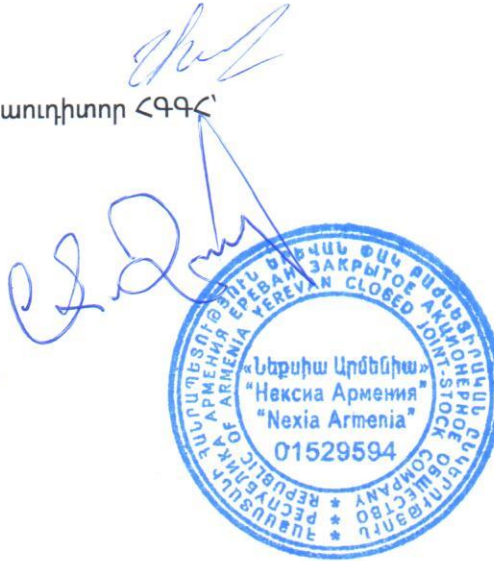 աուդիտոր ՀԳԳՀ՝
ՀԱՅԱՍՏԱՆԻ ՀԱՆՐԱՊԵՏՈՒԹՅՈՒՆ ԵՐԵՎԱՆ ՓԱԿ ԲԱԺՆԵՏԻՐԱԿԱՆ ԸՆԿԵՐՈՒԹՅՈՒՆ
РЕСПУБЛИКА АРМЕНИЯ ЕРЕВАН ЗАКРЫТОЕ АКЦИОНЕРНОЕ ОБЩЕСТВО
REPUBLIC OF ARMENIA YEREVAN CLOSED JOINT-STOCK COMPANY
«Նեքսիա Արմենիա»
“Нексиа Армения”
“Nexia Armenia”
01529594